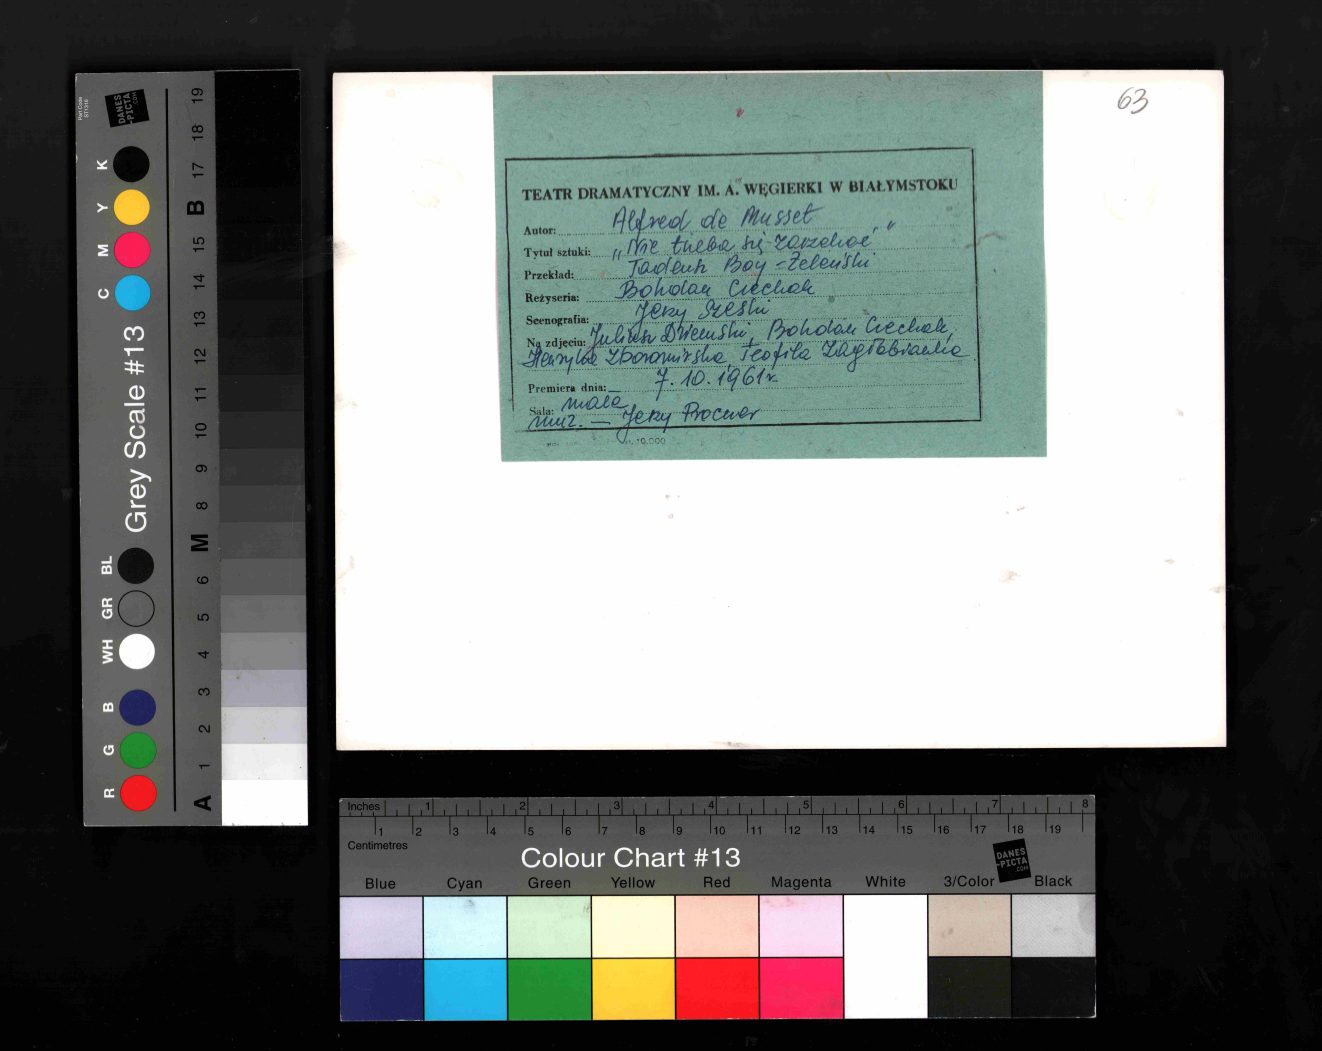 63
TEATR DRAMATYCZNY IM. A. WĘGIERKI W BIAŁYMSTOKU
Autor: Alfred de Musset
Tytuł sztuki: „Nie trzeba się zarzekać"
Przekład: Tadeusz Boy-Żeleński
Reżyseria: Bohdan Czechak
Scenografia: Jerzy Szeski
Na zdjęciu: Juliusz Dzieński, Bohdan Czechak,
Henryka Zboromirska, Teofila Zagłobianka
Premiera dnia: 7.10.1961r.
Sala: mała
muz. — Jerzy Procner
10.000
Part Code
ST1316
DANES
-PICTA
.COM
K
Y
M
C
Grey Scale #13
BL
GR
WH
B
G
R
A 1 2 3 4 5 6 M 8 9 10 11 12 13 14 15 B 17 18 19
Inches 1 2 3 4 5 6 7 8
1 2 3 4 5 6 7 8 9 10 11 12 13 14 15 16 17 18 19
Centimetres
Colour Chart #13
DANES
-PICTA
.COM
Blue Cyan Green Yellow Red Magenta White 3/Color Black